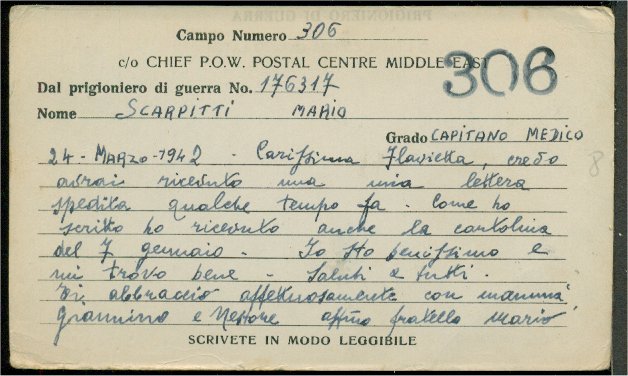 Campo Numero 306
c/o CHIEF P.O.W. POSTAL CENTRE MIDDLE EAST
306
Dal prigioniero di guerra No. 176317
Nome SCARPITTI MARIO
Grado CAPITANO MEDICO
24 - MARZO - 1942 - Carissima Flavietta, credo
avrai ricevuto una mia lettera
spedita qualche tempo fa. Come ho
scritto ho ricevuto anche la cartolina
del 7 gennaio - Io sto benissimo e
mi trovo bene - Saluti a tutti.
Vi abbraccio affettuosamente con mamma
Giannino e Nestore affmo fratello Mario
SCRIVETE IN MODO LEGGIBILE
8